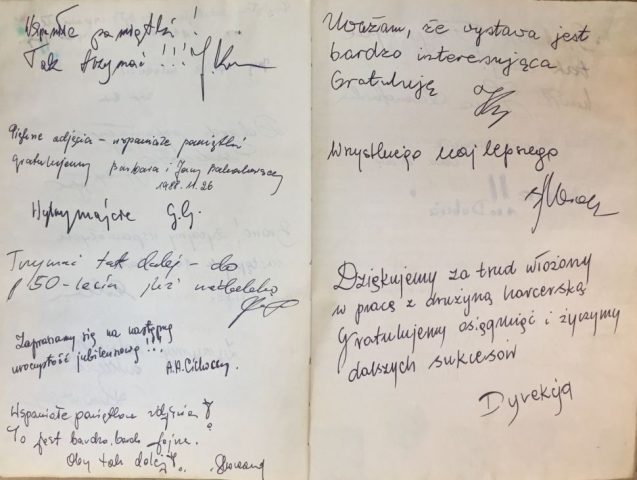 Wspaniałe pamiątki!
Tak trzymać!!!
Piękne zdjęcia - wspaniałe pamiątki
gratulujemy Barbara i Jany
1988.11.26
Wytrzymajcie G.G.
Trzymać tak dalej - do
50-lecia już niedaleko
Zapraszamy się na następną
uroczystość jubileuszową!!!
A.A. Cichoccy.
Wspaniałe pamiątkowe zdjęcia!
To jest bardzo, bardo fajne.
Oby tak dalej!
Uważam, że wystawa jest
bardzo interesująca
Gratuluję
Wszystkiego najlepszego
Dziękujemy za trud włożony
w pracę z drużyną harcerską
Gratulujemy osiągnięć i życzymy
dalszych sukcesów
Dyrekcja